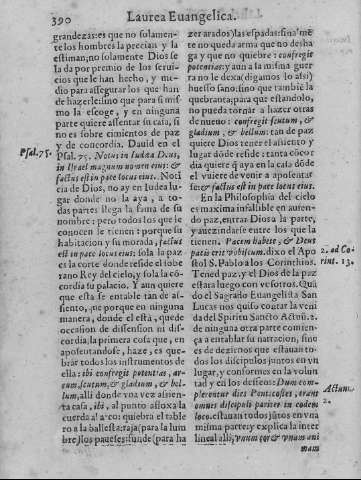 390 Laurea Euangelica.
grandezas: es que no solamen-
te los hombres la precian y la
estiman; no solamente Dios se
la da por premio de los serui-
cios que le han hecho, y me-
dio para assegurar los que han
de hazerle: sino que para si mis-
mo la escoge, y en ninguna
parte quiere assentar su casa, si
no es sobre cimientos de paz
y de concordia. Dauid en el
Psal. 75.
Psal. 75. Notus in Iudæa Deus,
in Israel magnum nomen eius: &
factus est in pace locus eius. Noti
cia de Dios, no ay en Iudea lu-
gar donde no la aya, a to-
das partes llega la fama de su
nombre: pero todos los que le
conocen le tienen: porque su
habitacion y su morada, factus
est in pace locus eius; sola la paz
es la corte donde reside el sobe
rano Rey del cielo, y sola la cō-
cordia su palacio. Y aun quiere
que esta se entable tan de as-
siento, que porque en ninguna
manera, donde el està, quede
ocasion de dissension ni dis-
cordia, la primera cosa que, en
aposentandose, haze, es que-
brar todos los instrumentos de
ella: ibi confregit potentias, ar-
cum, scutum, & gladium, & bel-
lum, alli donde vna vez assien-
ta casa, ibi, al punto afloxa la
cuerda al arco: quiebra el table-
ro a la ballesta: raja (para la lum
bre) los paueses: funde (para ha
zer arados) las espadas: sin a me
te no queda arma que no desha
ga y que no quiebre: confregit
potentias: y aun a la misma guer
ra no le dexa (digamos lo assi)
huesso sano: sino que tambiē la
quebranta; para que estandolo,
no pueda tornar a hazer otras
de nueuo: confregit scutum, &
gladium, & bellum: tan de paz
quiere Dios tener el assiento y
lugar dōde reside: tanta cōcor
dia quiere q̃ aya en la casa dōde
el viniere de venir a aposentar
se: & factus est in pace locus eius.
En la Philosophia del cielo
es maxima infalible en ausen-
do paz, entrar Dios a la parte,
y auezindarse entre los que la
tienen. Pacem habete, & Deus
pacis erit vobiscum. dixo el Apo
stol S. Pablo a los Corinthios.
2. ad Co
rint. 13.
Tened paz, y el Dios de la paz
estara luego con vosotros. Quā
do el Sagrado Euangelista San
Lucas nos quiso contar la veni
da del Spiritu Sancto Actuū. 2.
de ninguna otra parte comien-
ça a entablar su narracion, sino
es de dezirnos que estauā to-
dos los discipulos juntos en vn
lugar, y conformes en la volun
tad y en los desseos: Dum com-
Actuum
2.
plerentur dies Pentecostes, erant
omnes discipuli pariter in eodem
loco. estauan todos jūtos en vna
misma parte: y explica la inter
lineal alli, vnum cor & vnam ani
mam